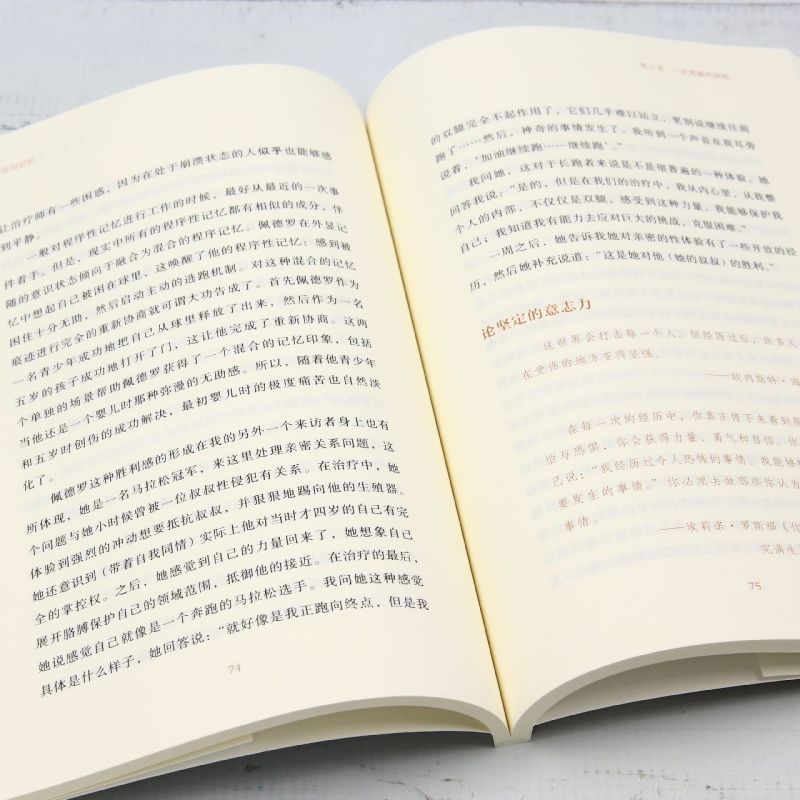 伤与记忆
让治疗师有一些困惑，因为在处于崩溃状态的人似乎也能够感
到平静。
一般对程序性记忆进行工作的时候，最好从最近的一次事
件着手。但是，现实中所有的程序性记忆都有相似的成分，伴
随的意识状态倾向于融合为混合的程序记忆。佩德罗在外显记
忆中想起自己被困在球里，这唤醒了他的程序性记忆：感到被
困住十分无助，然后启动主动的逃跑机制。对这种混合的记忆
痕迹进行完全的重新协商就可谓大功告成了。首先佩德罗作为
一名青少年成功地把自己从球里释放了出来，然后作为一名
五岁的孩子成功地打开了门，这让他完成了重新协商。这两
个单独的场景帮助佩德罗获得了一个混合的记忆印象，包括
当他还是一个婴儿时那种弥漫的无助感。所以，随着他青少年
和五岁时创伤的成功解决，最初婴儿时的极度痛苦也自然淡
化了。
佩德罗这种胜利感的形成在我的另外一个来访者身上也有
所体现，她是一名马拉松冠军，来这里处理亲密关系问题，这
个问题与她小时候曾被一位叔叔性侵犯有关系。在治疗中，她
体验到强烈的冲动想要抵抗叔叔，并狠狠地踢向他的生殖器。
她还意识到（带着自我同情）实际上他对当时才四岁的自己有完
全的掌控权。之后，她感觉到自己的力量回来了，她想象自己
展开胳膊保护自己的领域范围，抵御他的接近。在治疗的最后，
她说感觉自己就像是一个奔跑的马拉松选手。我问她这种感觉
具体是什么样子，她回答说：“就好像是我正跑向终点，但是我
74
的双腿完全不起作用了，它们几乎难以站立，更别说继续往前
跑了……然后，神奇的事情发生了，我听到一个声音在我耳旁
说着，‘加油继续跑……继续跑’。”
我问她，这对于长跑者来说是不是很普遍的一种体验。她
回答我说：“是的，但是在我们的治疗中，我从内心里，从我整
个人的内部，不仅仅是双腿，感受到这种力量。我能够保护我
自己；我知道我有能力去应对巨大的挑战，克服困难。”
一周之后，她告诉我她对亲密的性体验有了一些开放的经
历，然后她补充说道：“这是她对他（她的叔叔）的胜利。”
论坚定的意志力
这世界会打击每一个人。但经历过后，许多人
在受伤的地方变得坚强。
——欧内斯特·海
在每一次的经历中，你真正停下来看到
惶与恐惧，你会获得力量、勇气和自信。你
己说：“我经历过令人恐怖的事情。我能够
要发生的事情。”你必须去做那些你认为
事情。
——埃莉诺·罗斯福《
完满生
75